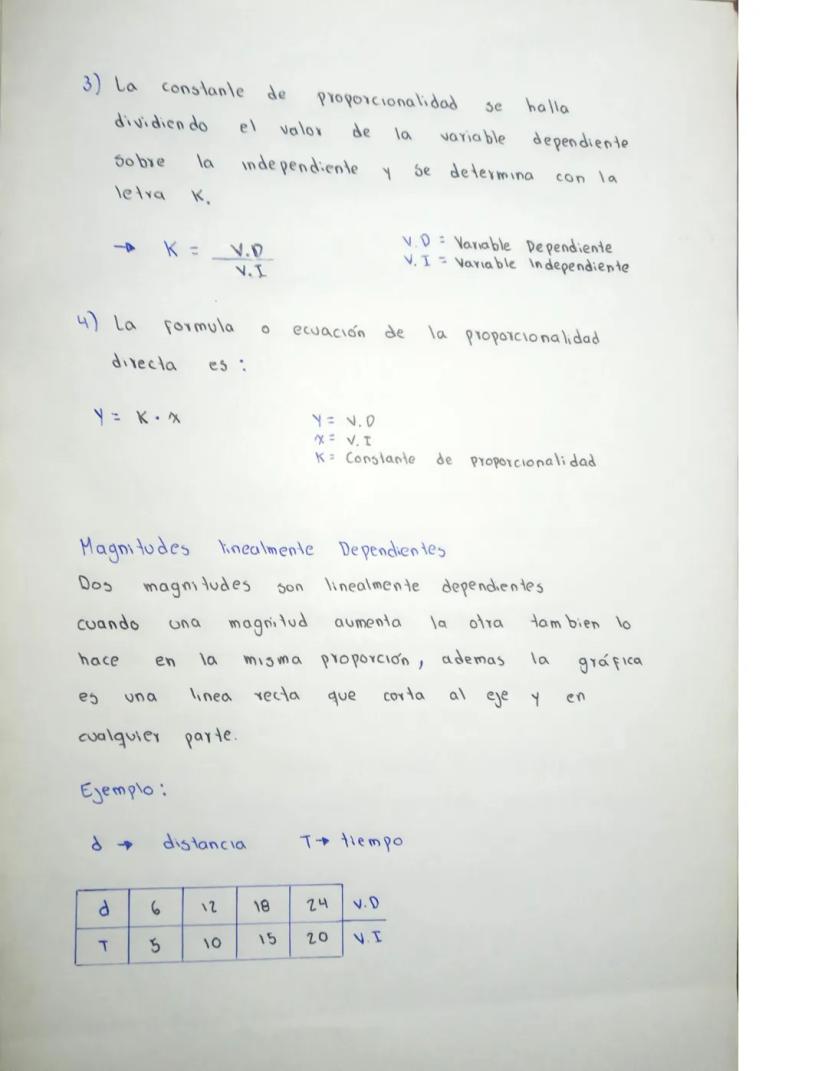 3) La constante de proporcionalidad se halla
dividiendo el valor de la variable dependiente
sobre la independiente y se determina con la
letra K.
→ K = V.D / V.I
V.D = Variable Dependiente
V.I = Variable Independiente
4) La formula o ecuación de la proporcionalidad
directa es:
Y = K · x
Y = V.D
x = V.I
K = Constante de proporcionalidad
Magnitudes linealmente Dependientes
Dos magnitudes son linealmente dependientes
cuando una magnitud aumenta la otra tambien lo
hace en la misma proporción, ademas la gráfica
es una linea recta que corta al eje y en
cualquier parte.
Ejemplo:
d → distancia T → tiempo
d 6 12 18 24 V.D
T 5 10 15 20 V.I